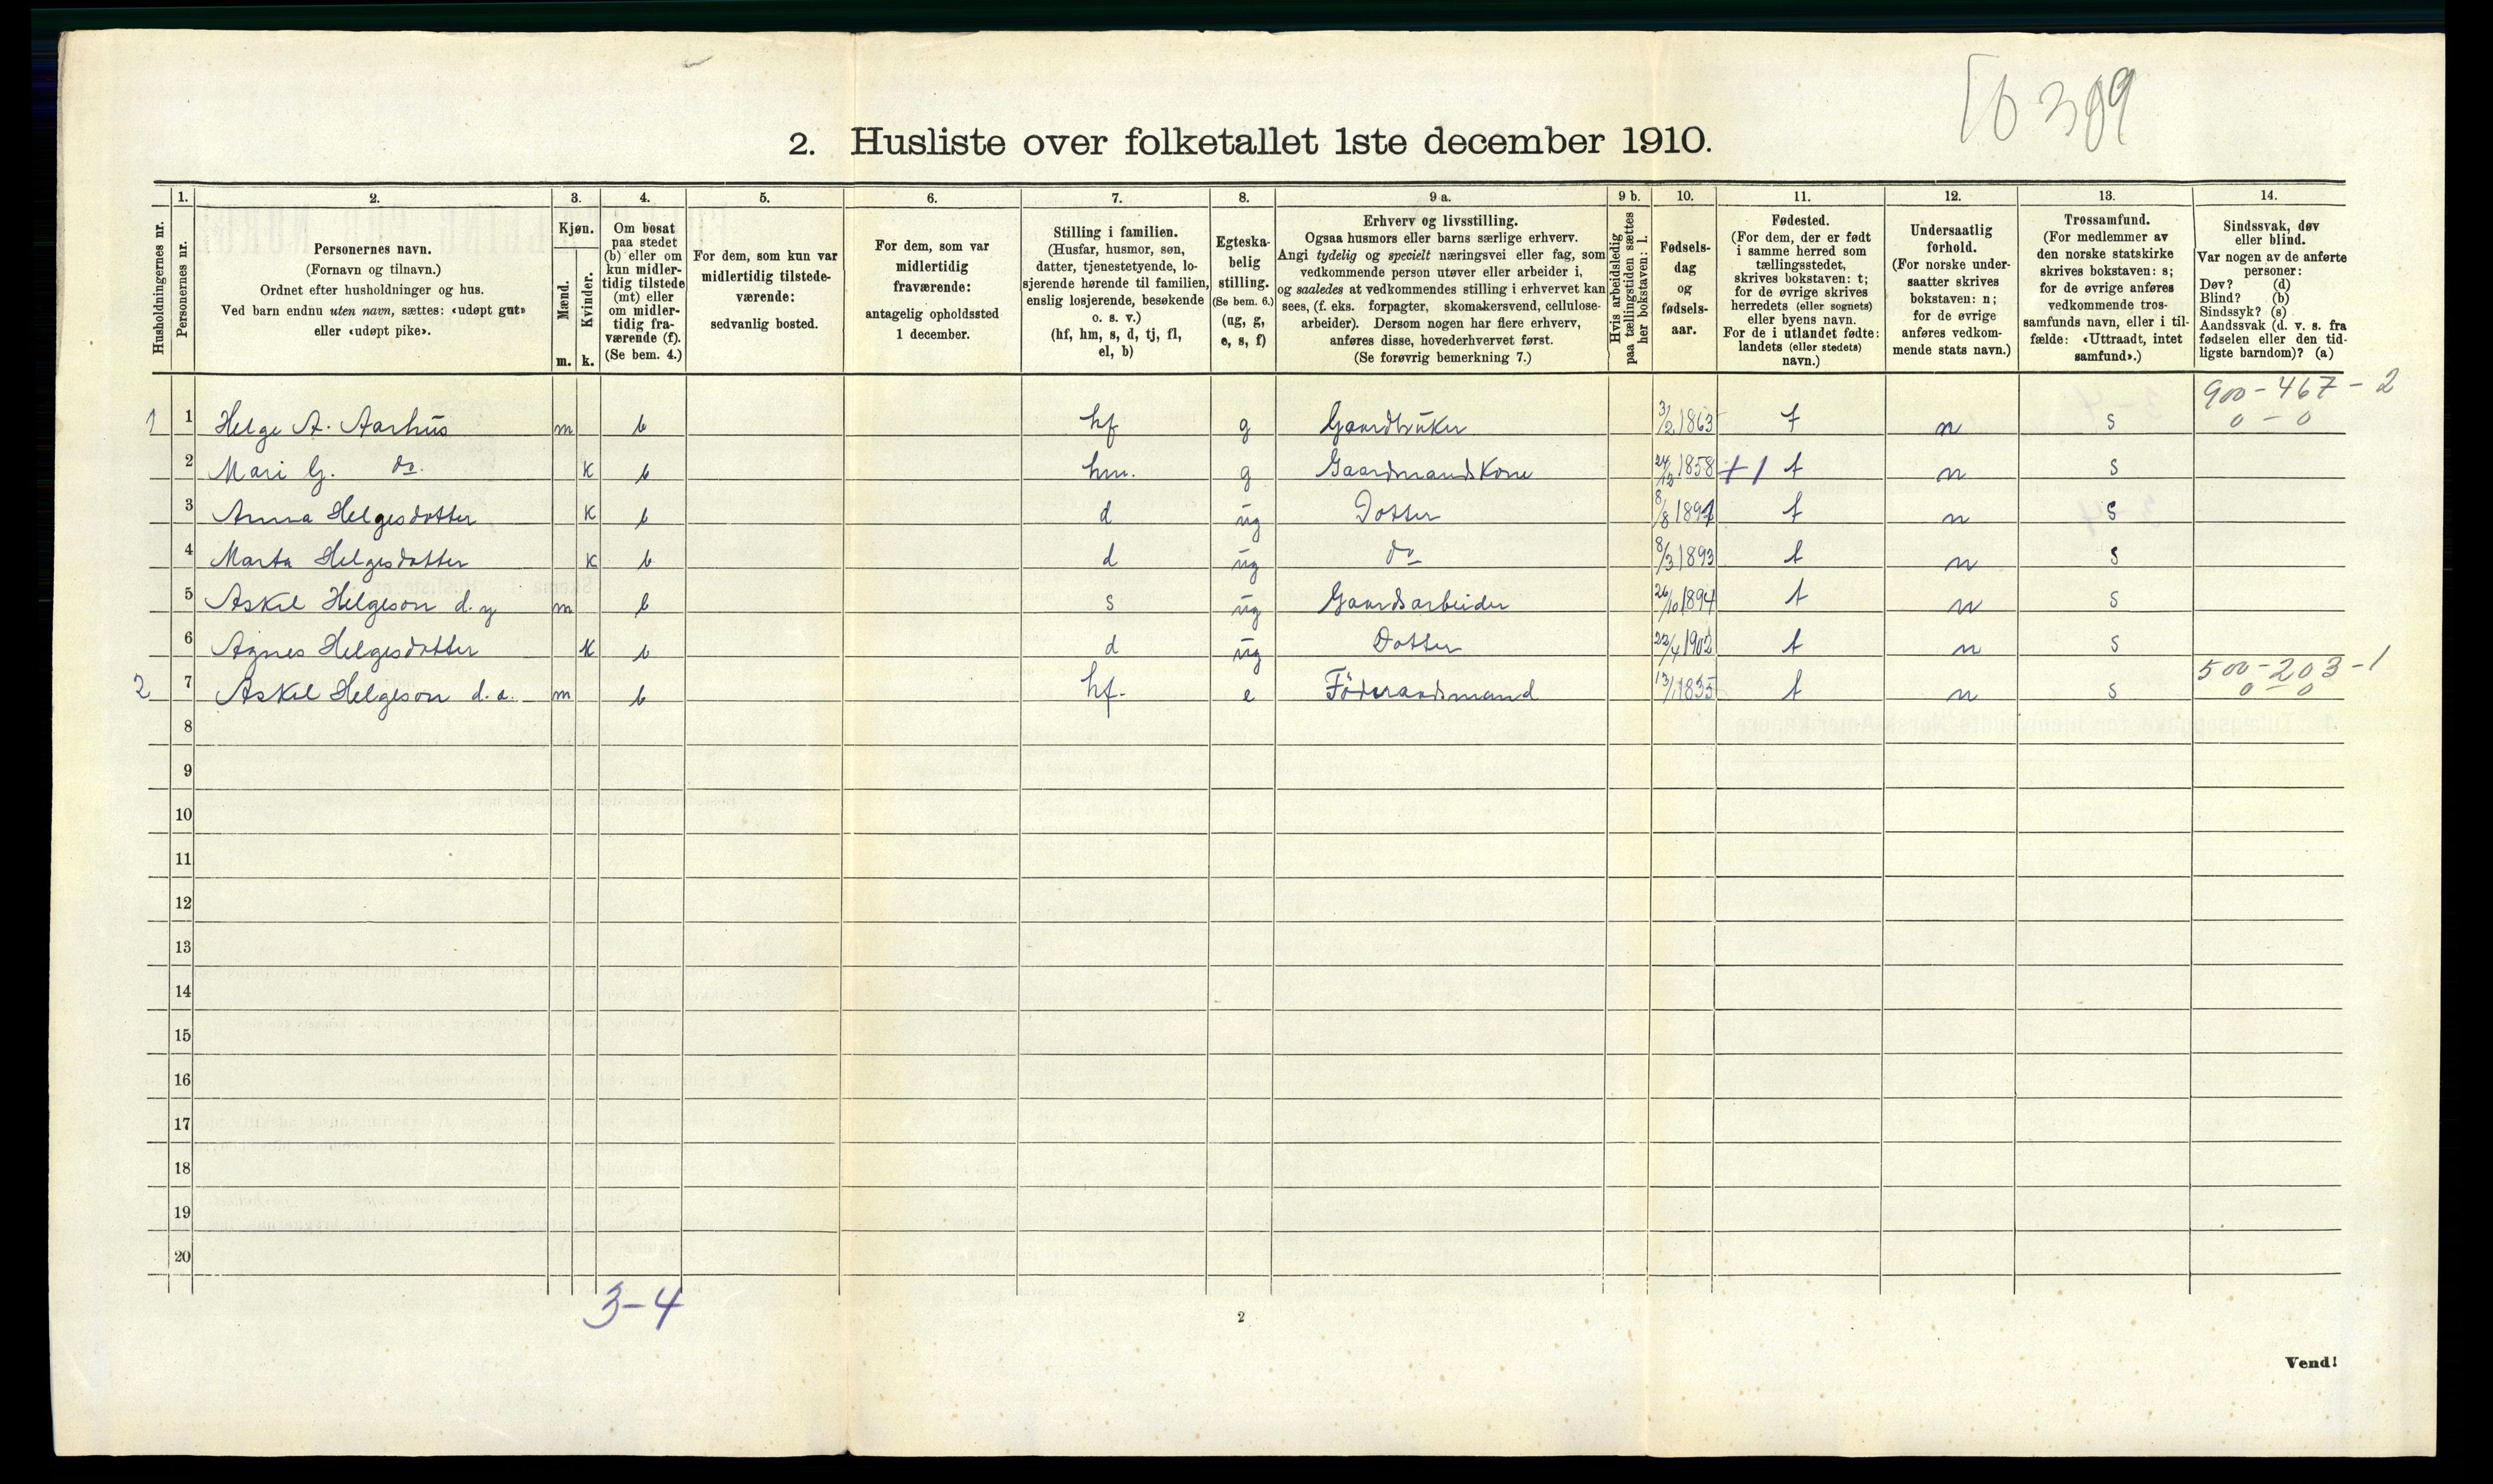 10399
2. Husliste over folketallet 1ste december 1910.
Husholdningernes nr.
1.
Personernes nr.
2.
Personernes navn.
(Fornavn og tilnavn.)
Ordnet efter husholdninger og hus.
Ved barn endnu uten navn, sættes: «udøpt gut»
eller «udøpt pike».
3.
Kjøn.
Mænd.
Kvinder.
m. k.
4.
Om bosat
paa stedet
(b) eller om
kun midler-
tidig tilstede
(mt) eller
om midler-
tidig fra-
værende (f).
(Se bem. 4.)
5.
For dem, som kun var
midlertidig tilstede-
værende:
sedvanlig bosted.
6.
For dem, som var
midlertidig
fraværende:
antagelig opholdssted
1 december.
7.
Stilling i familien.
(Husfar, husmor, søn,
datter, tjenestetyende, lo-
sjerende hørende til familien,
enslig losjerende, besøkende
o. s. v.)
(hf, hm, s, d, tj, fl,
el, b)
8.
Egteska-
belig
stilling.
(Se bem. 6.)
(ug, g,
e, s, f)
9 a.
Erhverv og livsstilling.
Ogsaa husmors eller barns særlige erhverv.
Angi tydelig og specielt næringsvei eller fag, som
vedkommende person utøver eller arbeider i,
og saaledes at vedkommendes stilling i erhvervet kan
sees, (f. eks. forpagter, skomakersvend, cellulose-
arbeider). Dersom nogen har flere erhverv,
anføres disse, hovederhvervet først.
(Se forøvrig bemerkning 7.)
9 b.
Hvis arbeidsledig
paa tællingstiden sættes
her bokstaven: l.
10.
Fødsels-
dag
og
fødsels-
aar.
11.
Fødested.
(For dem, der er født
i samme herred som
tællingsstedet,
skrives bokstaven: t;
for de øvrige skrives
herredets (eller sognets)
eller byens navn.
For de i utlandet fødte:
landets (eller stedets)
navn.)
12.
Undersaatlig
forhold.
(For norske under-
saatter skrives
bokstaven: n;
for de øvrige
anføres vedkom-
mende stats navn.)
13.
Trossamfund.
(For medlemmer av
den norske statskirke
skrives bokstaven: s;
for de øvrige anføres
vedkommende tros-
samfunds navn, eller i til-
fælde: «Uttraadt, intet
samfund».)
14.
Sindssvak, døv
eller blind.
Var nogen av de anførte
personer:
Døv? (d)
Blind? (b)
Sindssyk? (s)
Aandssvak (d. v. s. fra
fødselen eller den tid-
ligste barndom)? (a)
900 - 467 - 2
1 1 Helge A. Aarhus m b hf g Gaardbruker 3/2 1863 t n s 0 - 0
2 Mari G. do. k b hm. g Gaardmandskone 24/12 1858 +1 t n s
3 Anna Helgesdotter k b d ug Dotter 8/8 1891 t n s
4 Marta Helgesdotter k b d ug do 8/3 1893 t n s
5 Askil Helgeson d.y m b s ug Gaardsarbeider 26/10 1894 t n s
6 Agnes Helgesdotter k b d ug Dotter 22/4 1902 t n s
500 - 203 - 1
2 7 Askil Helgeson d.a. m b hf. e Föderaadsmand 13/1 1835 t n s 0 - 0
8
9
10
11
12
13
14
15
16
17
18
19
20
3-4
2
Vend!